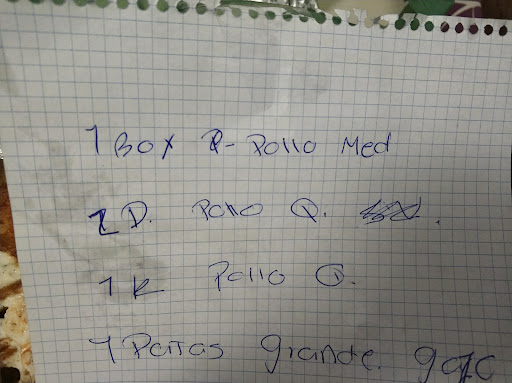 1 Box Q- Pollo Med
1 D. Pollo Q.
1 K Pollo Q.
1 Patatas grande.